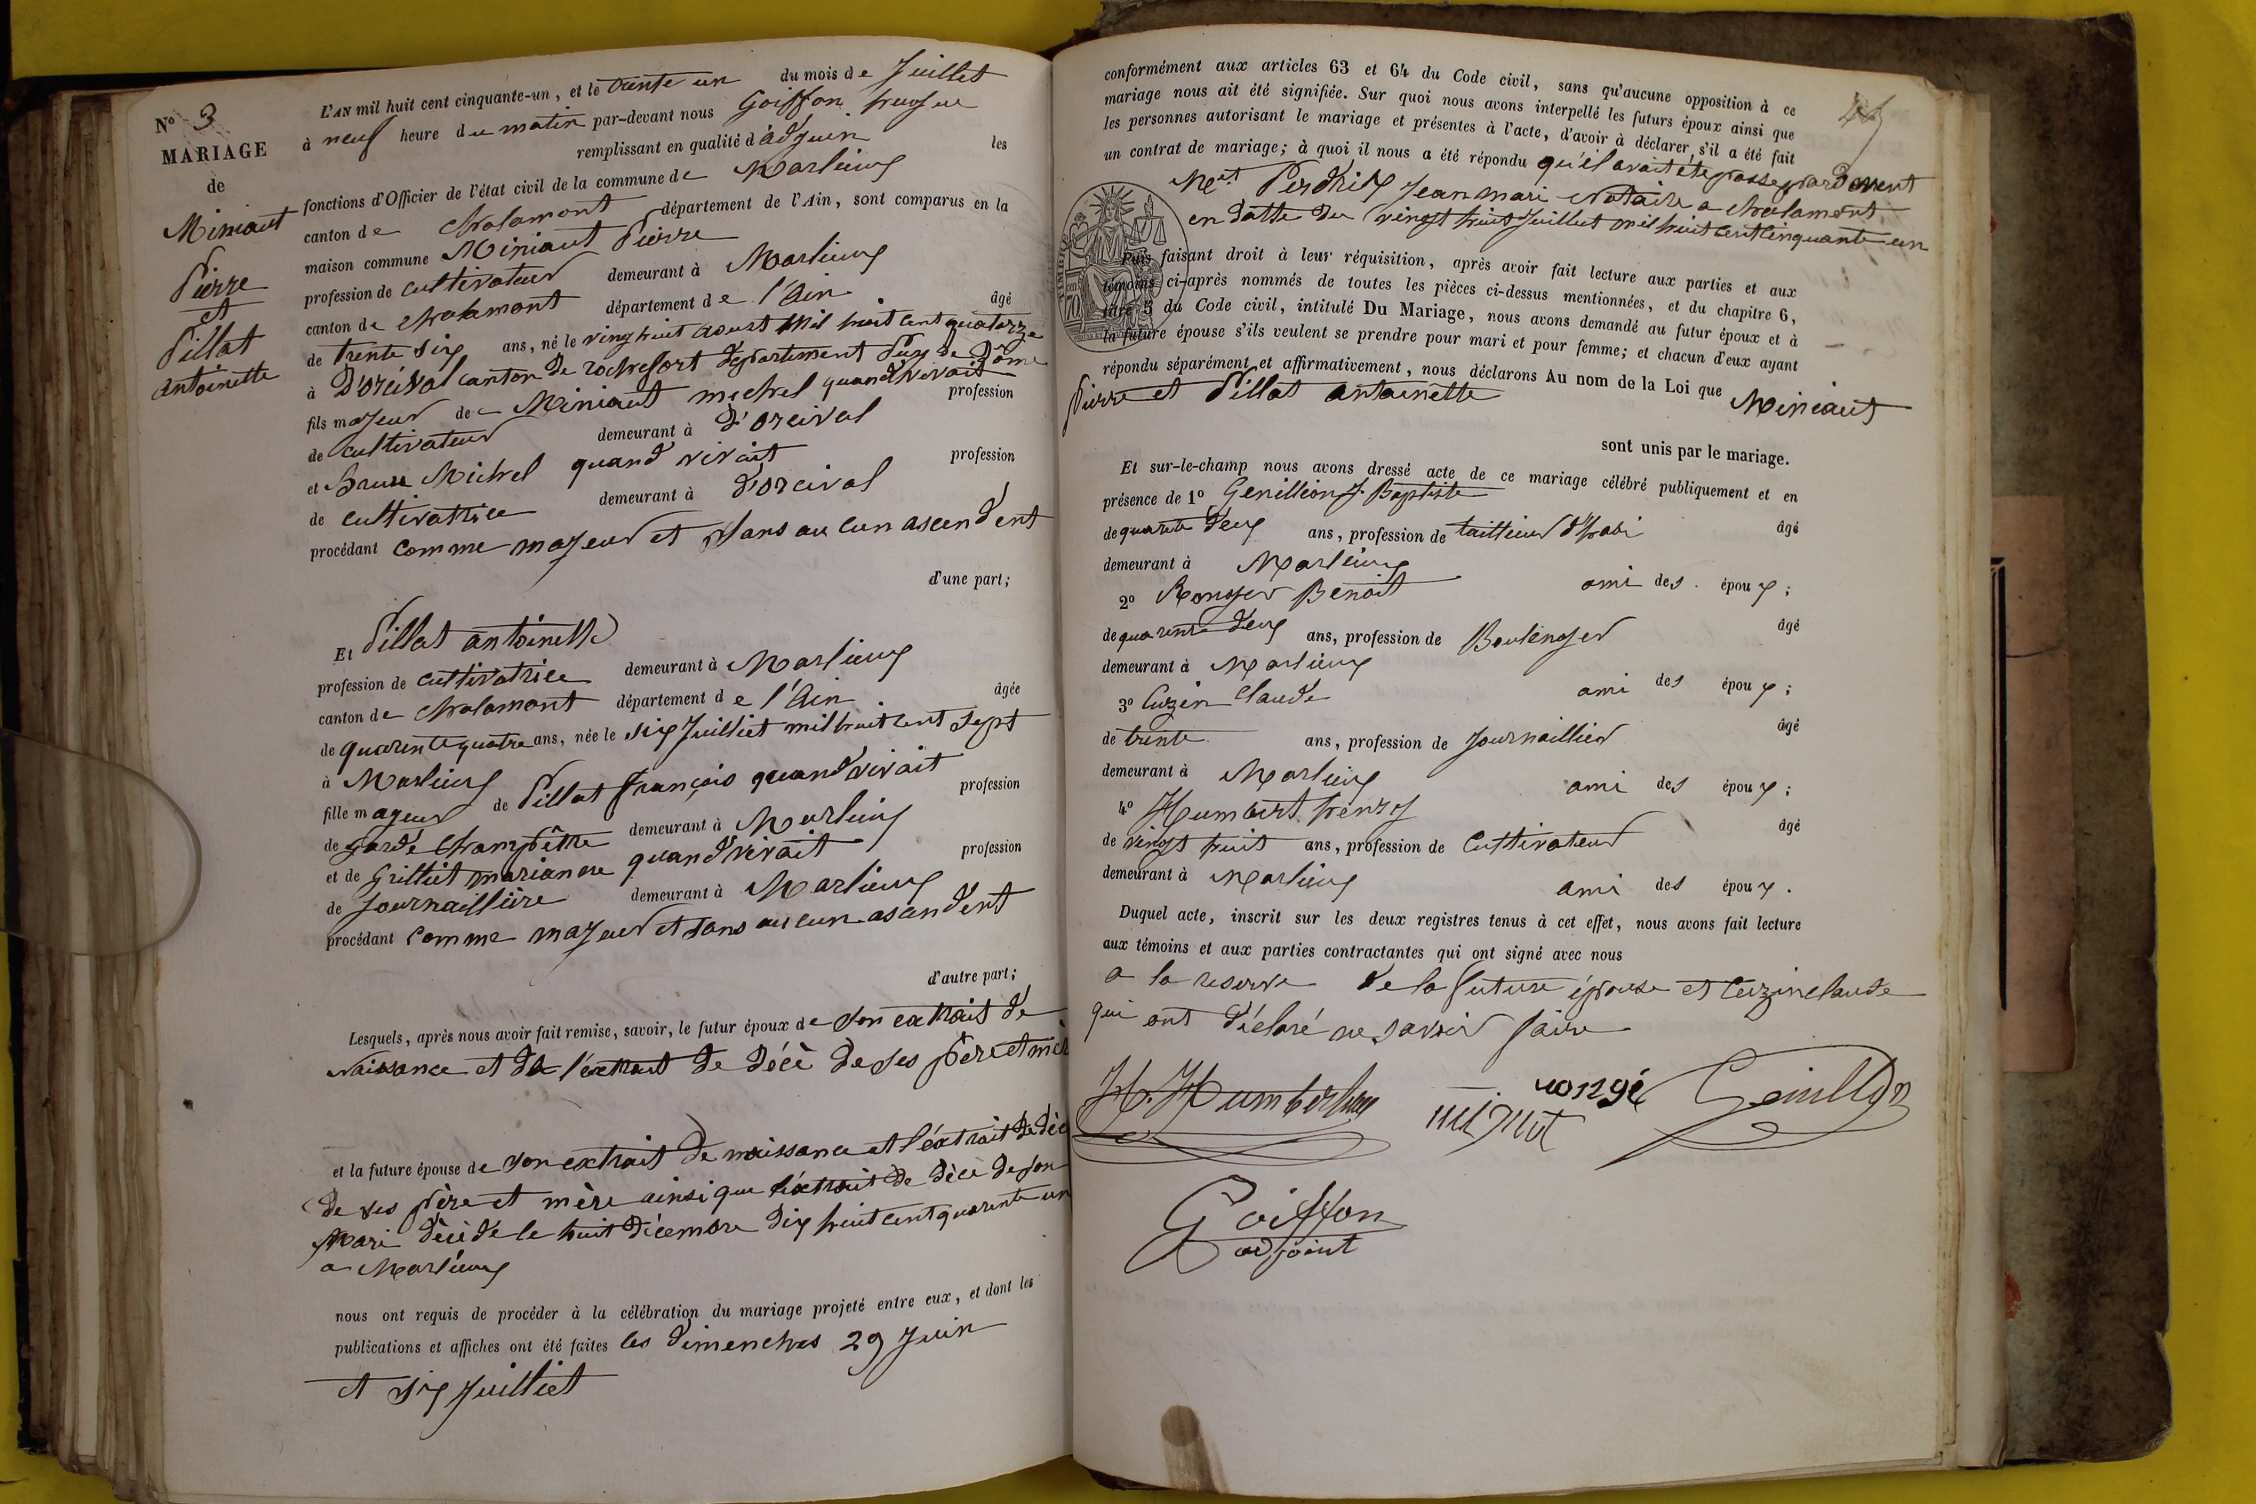 N° 3
MARIAGE
de
Miniaut
Pierre
et
Pillat
Antoinette
L'AN mil huit cent cinquante-un, et le trente un du mois de Juillet
à neuf heure du matin par-devant nous Goiffon
remplissant en qualité d'adjuin les
fonctions d'Officier de l'état civil de la commune de Marlieux
canton de chalamont département de l'Ain, sont comparus en la
maison commune Miniaut Pierre
profession de cultivateur demeurant à Marlieux
canton de chalamont département de l'Ain âgé
de trente six ans, né le vingt huit aoust mil huit cent quatorze
à D'orcival canton de rochefort departement Puy de Dôme
fils majeur de Miniaut michel quand vivait profession
de cultivateur demeurant à d'orcival
et Brun Michel quand vivait profession
de cultivatrice demeurant à d'orcival
procédant comme majeur et sans aucun ascendent
d'une part;
Et Pillat antoinette
profession de cultivatrice demeurant à Marlieux
canton de chalamont département de l'Ain âgée
de quarente quatre ans, née le six Juilliet mil huit cent sept
à Marlieux
fille mageur de Pillat françois quand vivait profession
de garde champêtre demeurant à Marlieux
et de Grilliet marianne quand vivait profession
de Journaillière demeurant à Marlieux
procédant comme majeur et sans aucun ascendent
d'autre part;
Lesquels, après nous avoir fait remise, savoir, le futur époux de son extrait de
Naissance et de l'extrait de décè de ses père et mère
et la future épouse de son extrait de naissance et l'éxtrait de décè
de ses père et mère ainsi que l'éxtrait de décè de son
Mari décédé le huit décembre dix huit cent quarente un
a Marlieux
nous ont requis de procéder à la célébration du mariage projeté entre eux, et dont les
publications et affiches ont été faites les dimenches 29 Juin
et six Juilliet
conformément aux articles 63 et 64 du Code civil, sans qu'aucune opposition à ce
mariage nous ait été signifiée. Sur quoi nous avons interpellé les futurs époux ainsi que
les personnes autorisant le mariage et présentes à l'acte, d'avoir à déclarer s'il a été fait
un contrat de mariage; à quoi il nous a été répondu qu'il avait été passé par devent
Met Perdrix Jean mari Notaire a chalamont
en datte du vingt huit Juilliet mil huit cent cinquante un
Puis faisant droit à leur réquisition, après avoir fait lecture aux parties et aux
témoins ci-après nommés de toutes les pièces ci-dessus mentionnées, et du chapitre 6,
titre 5 du Code civil, intitulé Du Mariage, nous avons demandé au futur époux et à
la future épouse s'ils veulent se prendre pour mari et pour femme; et chacun d'eux ayant
répondu séparément et affirmativement, nous déclarons Au nom de la Loi que Miniaut
Pierre et Pillat antoinette
sont unis par le mariage.
Et sur-le-champ nous avons dressé acte de ce mariage célébré publiquement et en
présence de 1° Genillion J. Baptiste âgé
de quarente deux ans, profession de tailleur d'habi
demeurant à Marlieux ami des époux;
2° Ronger Benoit âgé
de quarente deux ans, profession de Boulenger
demeurant à Marlieux ami des époux;
3° Cuzin Claude âgé
de trente ans, profession de Journaillier
demeurant à Marlieux ami des époux;
4° Humbert henry âgé
de vingt huit ans, profession de Cultivateur
demeurant à Marlieux ami des époux.
Duquel acte, inscrit sur les deux registres tenus à cet effet, nous avons fait lecture
aux témoins et aux parties contractantes qui ont signé avec nous
a la reserve de la future épouse et Cuzin claude
qui ont décloré ne savoir faire
H. Humbert rongé Genillion
Goiffon
adjoint